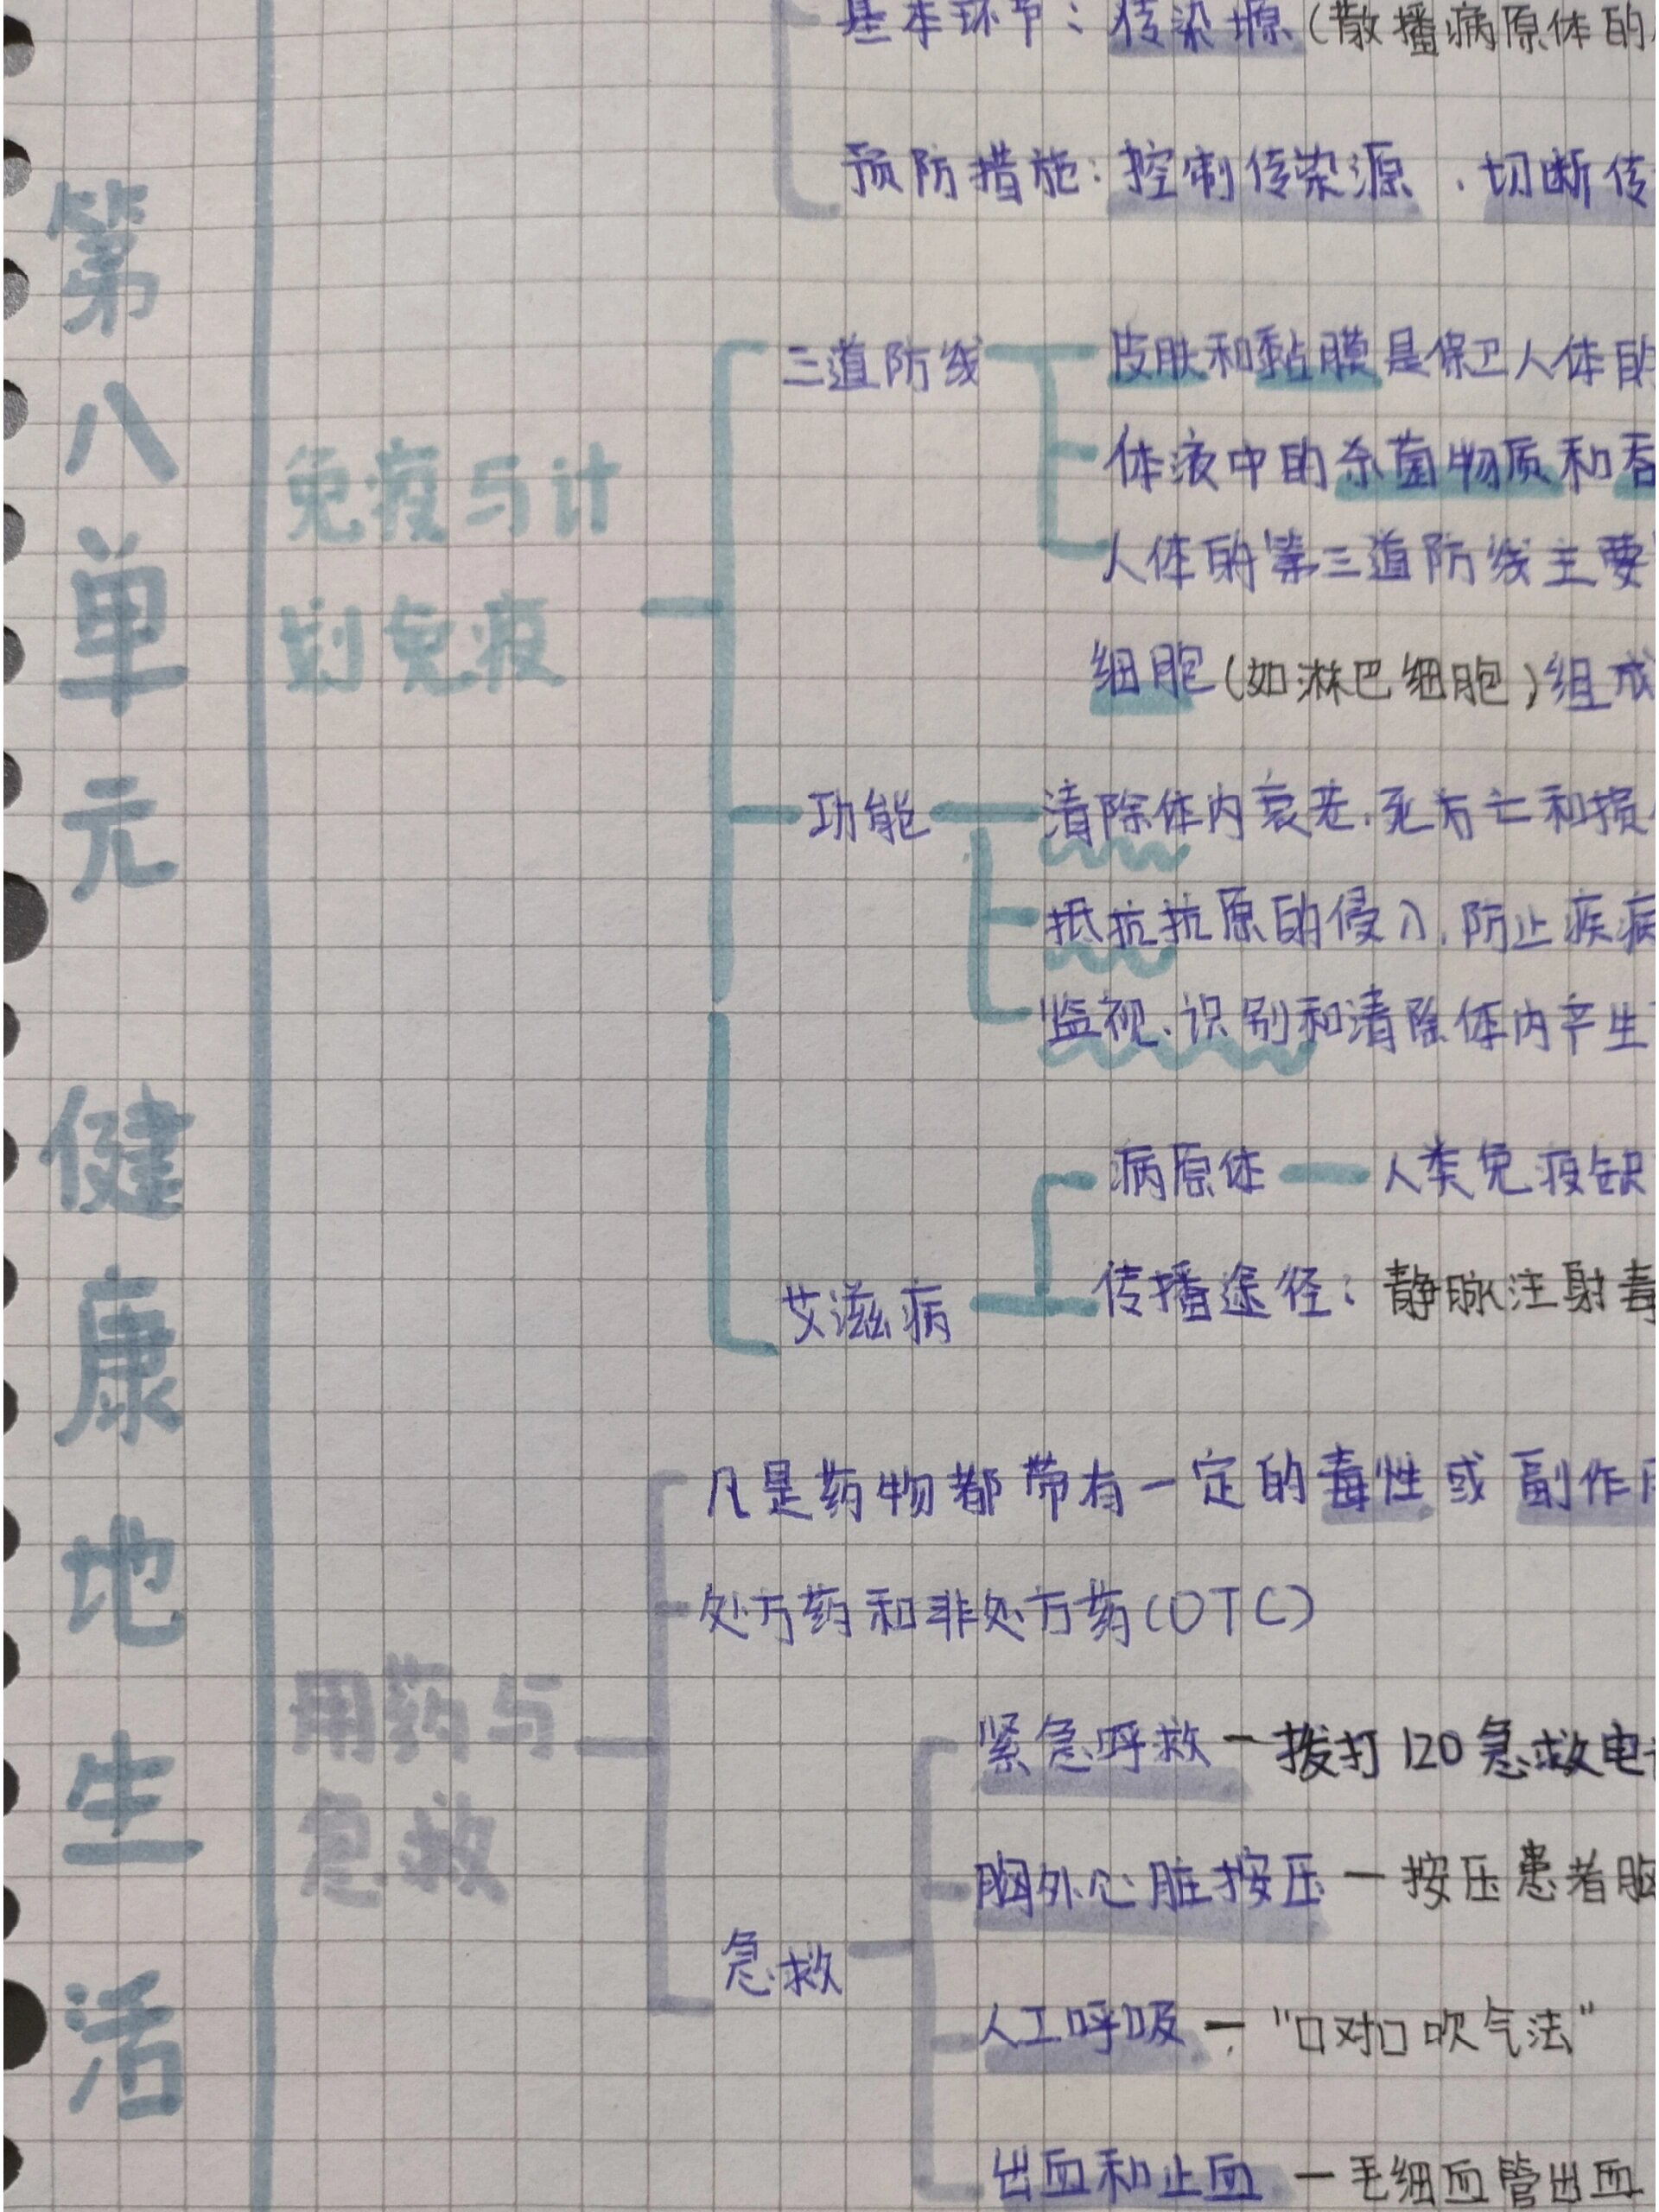 第八单元 健康地生活
基本环节：传染源（散播病原体的
预防措施：控制传染源、切断传
免疫与计
划免疫
三道防线
皮肤和黏膜是保卫人体的
体液中的杀菌物质和吞
人体的第三道防线主要
细胞（如淋巴细胞）组成
功能
清除体内衰老、死亡和损
抵抗抗原的侵入、防止疾病
监视、识别和清除体内产生
艾滋病
病原体 — 人类免疫缺
传播途径：静脉注射毒
用药与
急救
凡是药物都带有一定的毒性或副作用
处方药和非处方药（OTC）
急救
紧急呼救 — 拨打120急救电
胸外心脏按压 — 按压患者胸
人工呼吸 — “口对口吹气法”
出血和止血 — 毛细血管出血